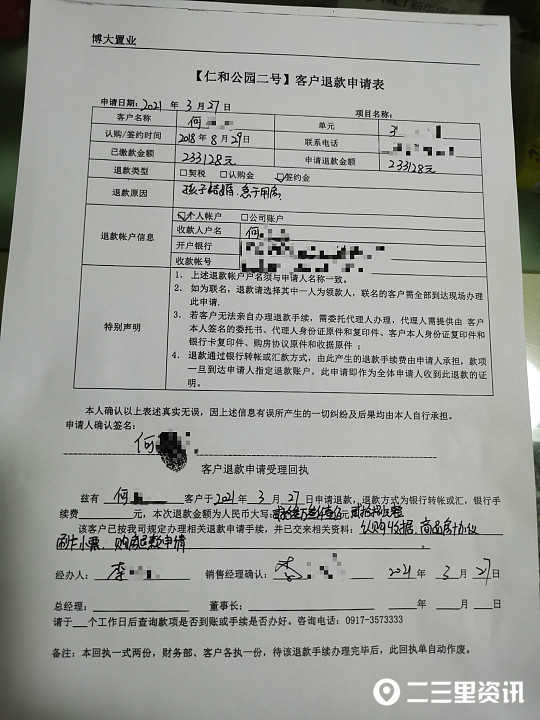 博大置业
【仁和公园二号】客户退款申请表
申请日期:2021 年 3 月 27 日 项目名称:
客户名称 何 单元 3
认购/签约时间 2018年 8 月 29日 联系电话
已缴款金额 233128元 申请退款金额 233128元
退款类型 □契税 □认购金 ☑签约金
退款原因 孩子结婚,急于用房.
退款帐户信息 ☑个人帐户 □公司账户
收款人户名 何
开户银行
收款帐号
特别声明
1. 上述退款帐户户名须与申请人名称一致。
2. 如为联名,退款请选择其中一人为领款人,联名的客户需全部到达现场办理
此申请.
3. 若客户无法亲自办理退款手续,需委托代理人办理,代理人需提供由 客户
本人签名的委托书、代理人身份证原件和复印件、客户本人身份证复印件和
银行卡复印件、购房协议原件和收据原件;
4. 退款通过银行转帐或汇款方式,由此产生的退款手续费由申请人承担。款项
一旦到达申请人指定退款账户,此申请即作为全体申请人收到此退款的证
明。
本人确认以上表述真实无误,因上述信息有误所产生的一切纠纷及后果均由本人自行承担。
申请人确认签名:
何
客户退款申请受理回执
兹有 何 客户于 2021 年 3 月 27 日申请退款,退款方式为银行转帐或汇,银行手
续费 元,本次退款金额为人民币大写:
该客户已按我司规定办理相关退款申请手续,并已交来相关资料:认购收据、商品房协议
刷卡小票、购房退款申请
经办人:李 销售经理确认:李 2021 年 3 月 27 日
总经理: 董事长: 年 月 日
请于 个工作日后查询款项是否到账或手续是否办好。咨询电话:0917-3573333
备注:本回执一式两份,财务部、客户各执一份,待该退款手续办理完毕后,此回执单自动作废。
二三里资讯